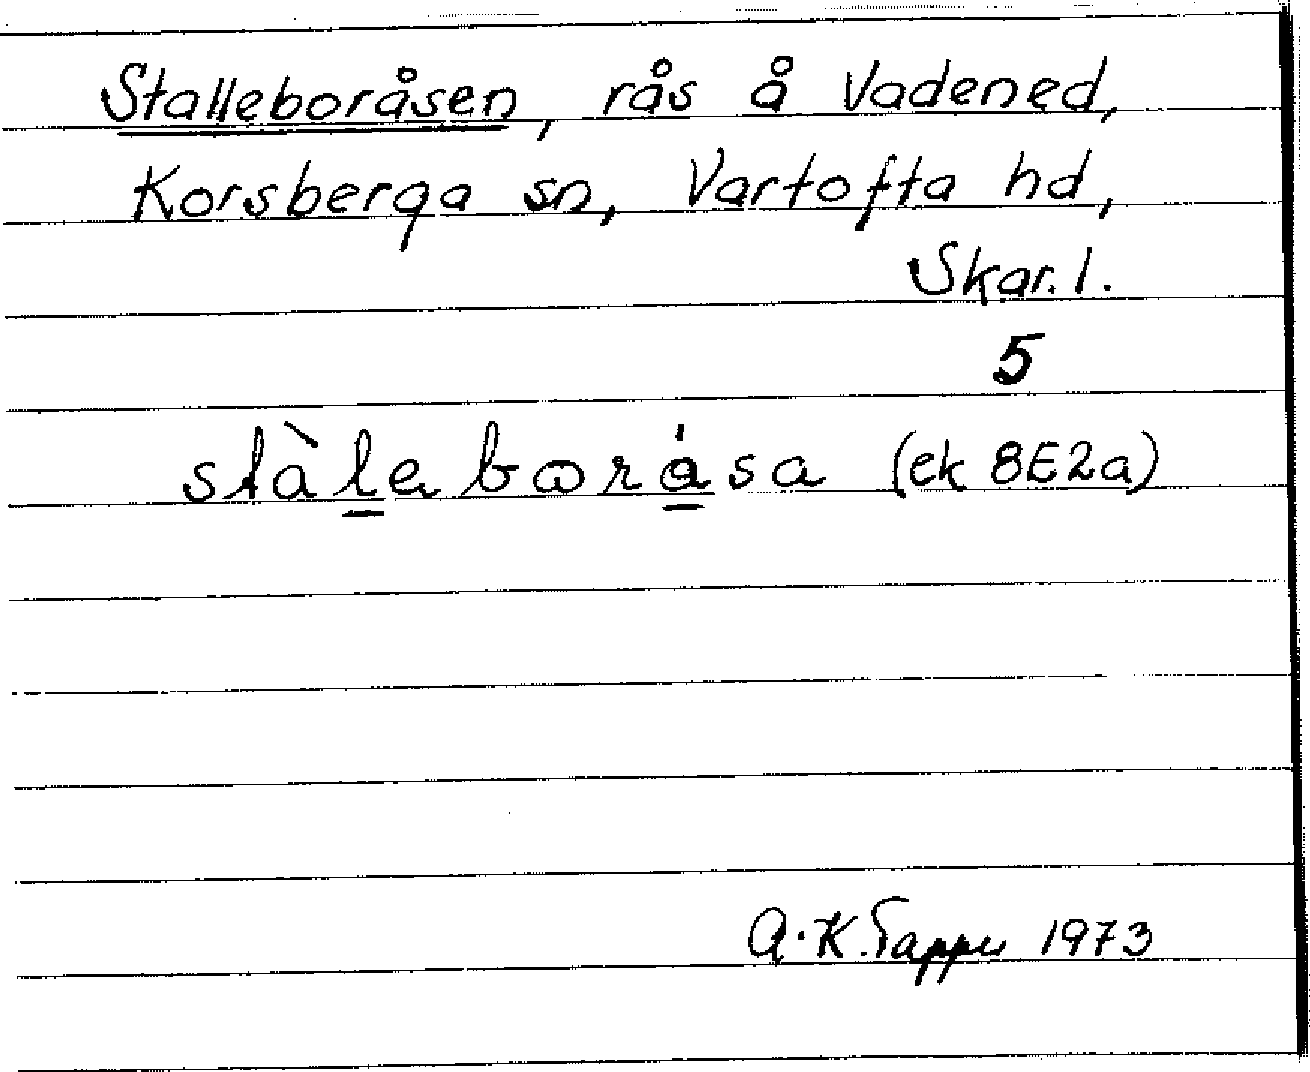 Stalleboråsen, rås å Vadened,
Korsberga sn, Vartofta hd,
Skar. l.
5
stàl̲eborǻ̲sa (ek 8E2a)
A.K. 1973